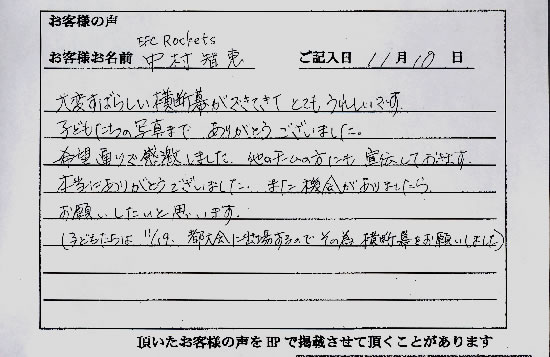 お客様の声
EFC Rockets
お客様お名前 中村 智恵 ご記入日 11月10日
大変すばらしい横断幕ができてきて とてもうれしいです
子どもたちの写真まで ありがとうございました。
希望通りで感激しました。他のチームの方にも宣伝しておきます。
本当にありがとうございました。また機会がありましたら
お願いしたいと思います。
(子どもたちは 11/19、都大会に出場するので その為 横断幕をお願いしました)
頂いたお客様の声をHPで掲載させて頂くことがあります